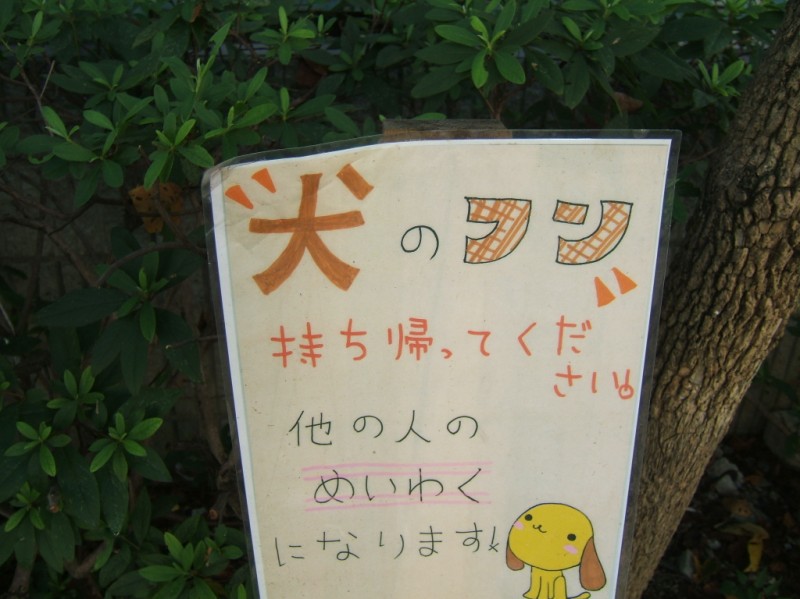 "犬のフン"
持ち帰ってくだ
さい。
他の人の
めいわく
になります!